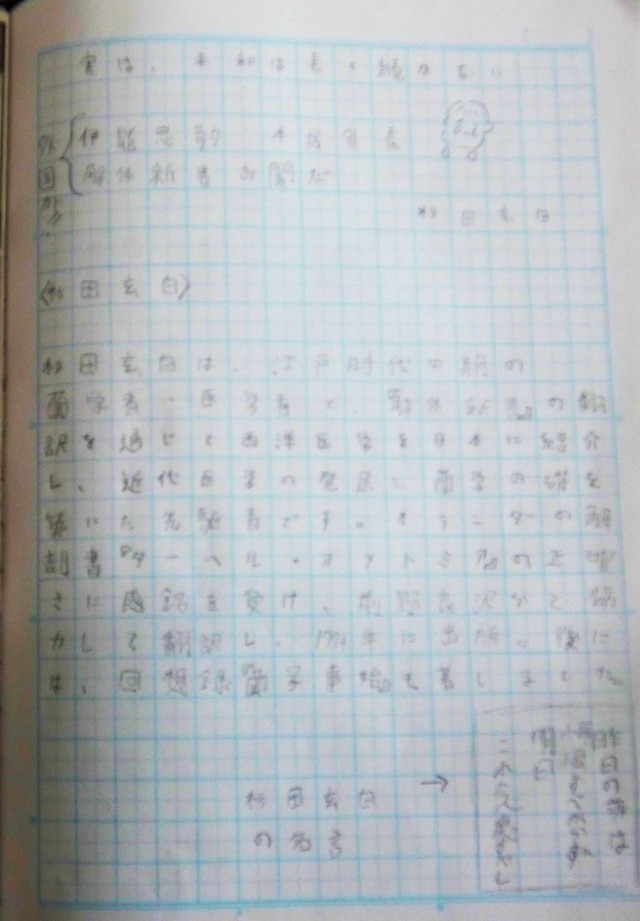 実は、平和は長く続かない
外国から
伊能忠敬
解体新書
杉田玄白
〈杉田玄白〉
杉田玄白は、江戸時代中期の
蘭学者・医学者で、『解体新書』の翻
訳を通じて西洋医学を日本に紹介
し、近代医学の発展と蘭学の礎を
築いた先駆者です。オランダの解
剖書『ターヘル・アナトミア』の正確
さに感銘を受け、前野良沢らと協
力して翻訳し、1774年に出版。後に
は、回想録『蘭学事始』を著しました。
杉田玄白
の名言
→
昨日の非は
悔恨すべからず
明日
これ